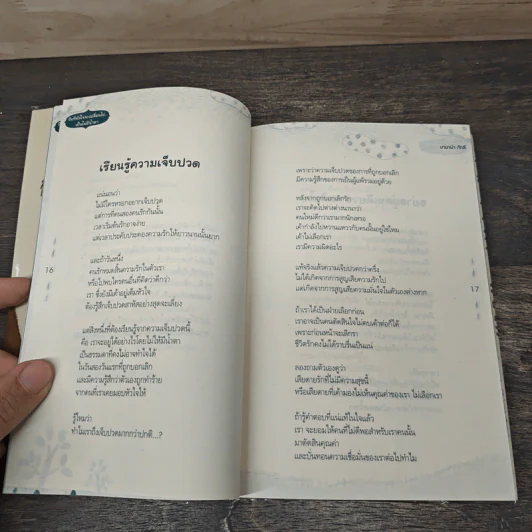 เรียนรู้ความเจ็บปวด
แน่นอนว่า
ไม่มีใครหรอกอยากเจ็บปวด
แต่การที่คนสองคนรักกันนั้น
เวลาเริ่มต้นรักอาจง่าย
แต่เวลาประคับประคองความรักให้ยาวนานนั้นยาก
และถ้าวันหนึ่ง
คนรักหมดสิ้นความรักในตัวเรา
หรือไปพบใครคนอื่นที่คิดว่าดีกว่า
เรา ซึ่งยังมีเค้าอยู่เต็มหัวใจ
ต้องรู้สึกเจ็บปวดสาหัสอย่างสุดจะเลี่ยง
16
แต่สิ่งหนึ่งที่ต้องเรียนรู้จากความเจ็บปวดนี้
คือ เราจะอยู่ได้อย่างไรโดยไม่ให้มีน้ำตา
เป็นธรรมดาที่คงไม่อาจทำใจได้
ในวันสองวันแรกที่ถูกบอกเลิก
และมีความรู้สึกว่าตัวเองถูกทำร้าย
จากคนที่เราเคยมอบหัวใจให้
รู้ไหมว่า
ทำไมเราถึงเจ็บปวดมากกว่าปกติ...?
เพราะว่าความเจ็บปวดของการที่ถูกบอกเลิก
มีความรู้สึกของการเป็นผู้แพ้รวมอยู่ด้วย
หลังจากถูกบอกเลิกรัก
เราจะคิดไปต่างต่างนานาว่า
คนใหม่ดีกว่าเรามากนักเหรอ
เค้ากำลังไปหวานแหววกับคนนั้นอยู่ใช่ไหม
เค้าไม่เลือกเรา
เรามีความผิดอะไร
แท้จริงแล้วความเจ็บปวดกว่าครึ่ง
ไม่ได้เกิดจากการสูญเสียความรักไป
แต่เกิดจากการสูญเสียความมั่นใจในตัวเองต่างหาก
17
ถ้าเราได้เป็นฝ่ายเลือกก่อน
เราอาจเป็นคนตัดสินใจไม่คบเค้าต่อก็ได้
เพราะก่อนหน้าจะเลิกรา
ชีวิตรักคงไม่ได้ราบรื่นเป็นแน่
ลองถามตัวเองดูว่า
เสียดายรักที่ไม่มีความสุขนี้
หรือเสียดายที่เค้ามองไม่เห็นคุณค่าของเรา ไม่เลือกเรา
ถ้ารู้คำตอบที่แน่แท้ในใจแล้ว
เรา จะยอมให้คนที่ไม่ดีพอสำหรับเราคนนั้น
มาตัดสินคุณค่า
และบั่นทอนความเชื่อมั่นของเราต่อไปทำไม